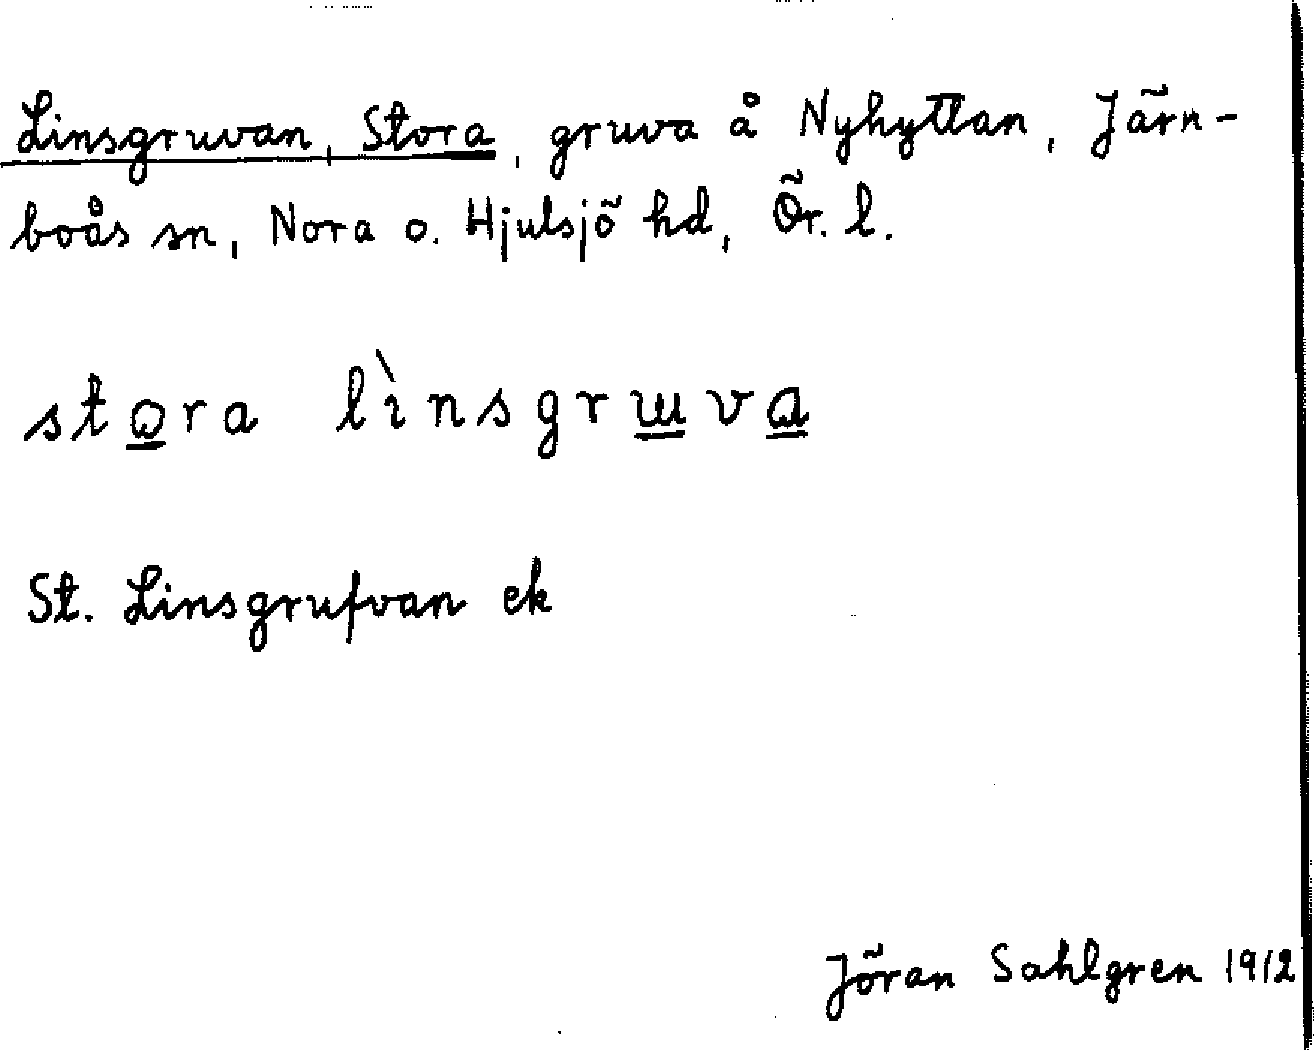 Linsgruvan, Stora, gruva å Nyhyttan, Järn-
boås sn, Nora o. Hjulsjö hd, Ör. l.
stora lìnsgruva
St. Linsgrufvan ek
Jöran Sahlgren 1912